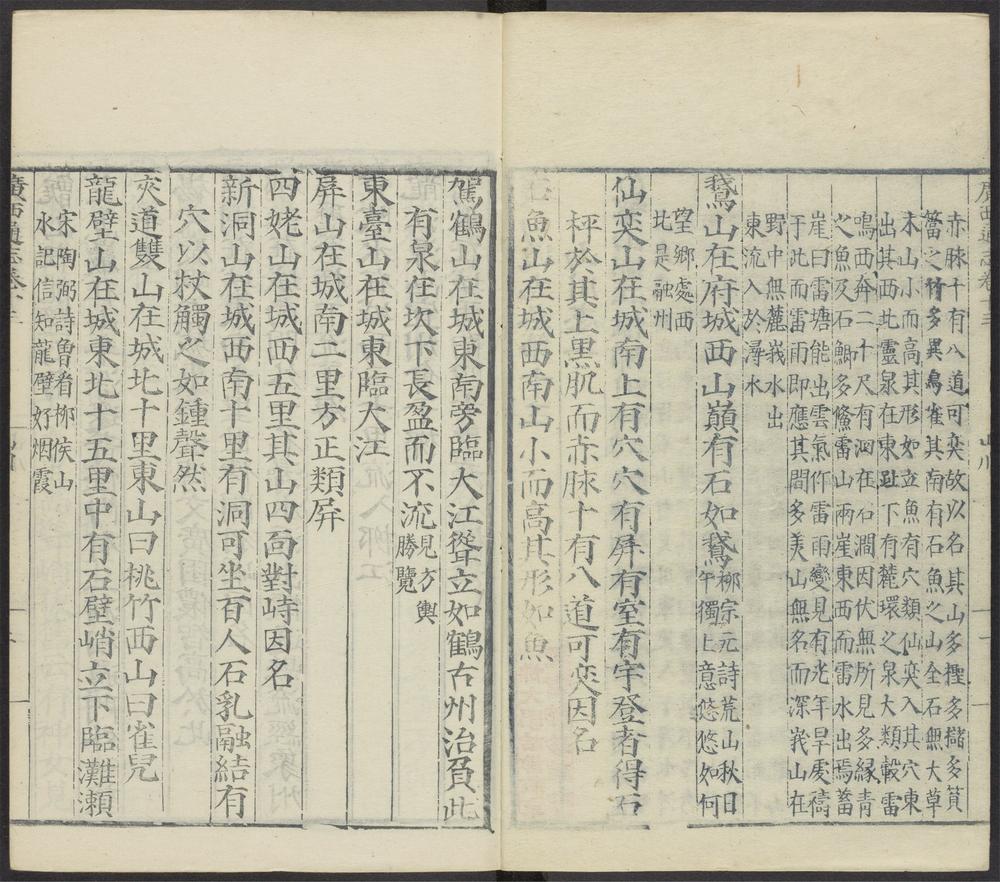 赤脉十有八道可奕故以名其山多檉多櫧多篔
簹之竹多異鳥雀其南有石魚之山全石無大草
木山小而高其形如立魚有穴類仙奕入其穴東
出其西北靈泉在東趾下有麓環之泉大類轂雷
鳴西奔二十尺有洄在石澗因伏無所見多緑青
之魚及石鯽多鯈雷山兩崖東西而雷水出焉蓄
崖曰雷塘能出雲氣作雷雨變見有光年旱處禱
于此而雷雨即應其間多美山無名而深峩山在
野中無麓峩水出
東流入於潯水
鵞山在府城西山巔有石如鵞柳宗元詩荒山秋日
午獨上意悠悠如何
望鄉處西
北是融州
仙奕山在城南上有穴穴有屏有室有宇登者得石
枰於其上黑肌而赤脉十有八道可奕因名
石魚山在城西南山小而高其形如魚
駕鶴山在城東南旁臨大江聳立如鶴古州治負此
有泉在坎下長盈而不流見方輿
勝覽
東臺山在城東臨大江
屏山在城南二里方正類屏
四姥山在城西五里其山四面對峙因名
新洞山在城西南十里有洞可坐百人石乳融結有
穴以杖觸之如鍾聲然
夾道雙山在城北十里東山曰桃竹西山曰雀兒
龍壁山在城東北十五里中有石壁峭立下臨灘瀨
宋陶弼詩魯看柳侯山
水記信知龍壁好烟霞
廣西通志卷十三